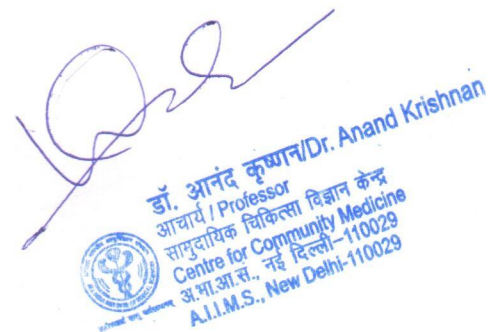 डॉ. आनंद कृष्णन/Dr. Anand Krishnan
आचार्य / Professor
सामुदायिक चिकित्सा विज्ञान केन्द्र
Centre for Community Medicine
अ.भा.आ.स., नई दिल्ली–110029
A.I.I.M.S., New Delhi-110029